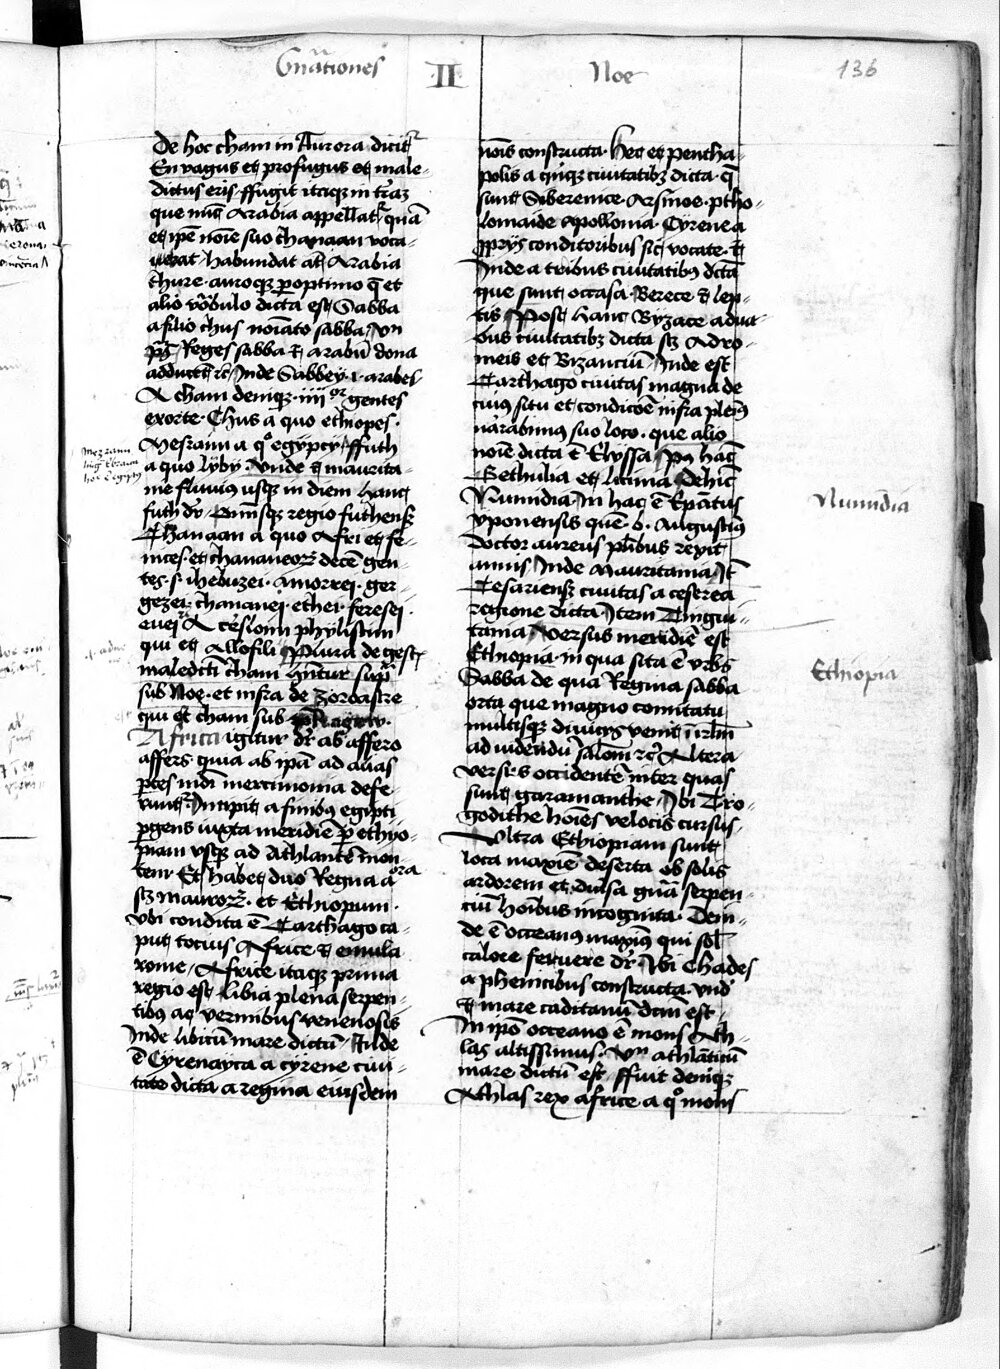 Gn̄ationes II Noe
136
De hoc cham in Aurora dicit᷑
En vagus et profugus et male-
dictus eris. ffugit itaqꝫ in t̄raꝫ
que nūc Arabia appellat᷑ quā
et ip̄e noīe suo chanaan voca-
uerat habundat at̄ Arabia
thure. auroqꝫ ꝑoptimo q̄ et
alio vocabulo dicta est Sabba
a filio chus noīato sabba. Vn̄
p̄s Reges sabba ⁊ arabū dona
adducēt ꝛc̄ Inde Sabbey .i. arabes
A cham deniqꝫ .iiii or gentes
exorte. Chus a quo ethiopes.
Mesraim a qͦ egypcy. ffuth
a quo lyby. Vnde ⁊ maurita-
nie fluuiꝯ usqꝫ in diem hanc
futh dr̄. Omīsqꝫ regio futhensꝫ
Chanaan a quo Afri et fe-
nices. et chananeoꝝ decē gen-
tes .s. ihebuzei. amorrei. ger-
gezei. chananei. ethei. feresei.
euei A cesloim phylistiim
qui et Allofili Plura de gestꝭ
maledicti cham hn̄tur sup̄
sub Noe. et infra de zoroastre
qui est cham sub
Africa igitur dr̄ ab affero
affers quia ab ipā ad aliās
ꝑtes mdi mercimonia defe-
runt᷑. Incipit a finibꝯ egipti
ꝑgens iuxta meridiē ꝑ ethyo-
piam vsqꝫ ad Athlantē mon-
tem Et habet duo Regna a ora
sꝫ mauroꝝ. et Ethiopum.
Vbi condita ē Carthago ca-
put tocius Africe ⁊ emula
rome. Africe itaqꝫ prima
regio est libia plena serpen-
tibꝯ ac vermibus venenosis
Inde libicū mare dictū. Inde
ē Cyrenayca a cyrene ciui-
tate dicta a regina eiusdem
nois constructa. Hec et pentha-
polis a quinqꝫ ciuitatibꝫ dicta. q̄
sunt Siberenice Arsinoe. ptho-
lomaide Apollonia Cyrenea
ꝓprys conditoribus sic vocate. ⁊
Inde a tribus ciuitatibꝯ dc̄ta
que sunt occasa. Berece ⁊ lep-
tis Post hanc Byzace a dua-
bus ciuitatibꝫ dicta sꝫ Adro-
meis et Bizanciū. Inde est
Carthago ciuitas magna de
cuiꝯ situ et condicōe infra pleniꝯ
narabimus suo loco. que alio
noīe dicta ē Elyssa. Pꝯ hac
Gethulia et Dehīc
Numidia In hac ē Ep̄atus
yponensis quē. b. Augustinꝯ
doctor aureus pl̄ibus rexit
annis Inde Mauritania. It̄
Cesariensꝫ ciuitas a ceserea
regione dicta Item Tingui-
tania, versus meridiē est
Ethiopia. in qua sita ē vrbs
Sabba de qua Regina sabba
orta que magno comitatu
multisqꝫ diuicys venit ihrlm̄
ad videndū salom̄ ꝛc̄ Altera
versus occidentē inter quas
sunt garamanthe. Ibi Tro-
godithe hoīes velocis cursus.
Ultra Ethiopiam sunt
loca maxīe deserta ob solis
ardorem et diūsa gn̄a serpen-
ciū hoībus incognita. Dein-
de ē occeanus maxīꝯ qui sol̄
calore feruere dr̄. Ibi Chades
a phenicibus constructa. vnd̄
⁊ mare caditanū dc̄m est.
In ip̄o occeano ē mons Ath-
las altissimus. Vn̄ athlāticū
mare dictū est. ffuit deniqꝫ
Athlas rex africe a qͦ mons
Numidia
Ethiopia